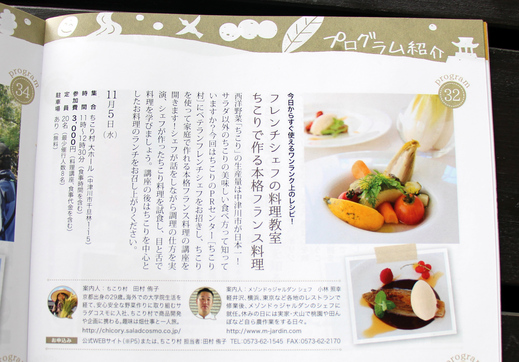 プログラム紹介
program
32
program
34
今日からすぐ使えるワンランク上のレシピ!
フレンチシェフの料理教室
ちこりで作る本格フランス料理
西洋野菜「ちこり」の生産量は中津川市が日本一!
サラダ以外のちこりの美味しい食べ方って知って
いますか?今回はちこりのPRセンター「ちこり
村」にベテランフレンチシェフをお招きし、ちこり
を使って家庭で作れる本格フランス料理の講座を
開きます!シェフが話をしながら調理の仕方を実
演、シェフが作ったちこり料理を試食し、目と舌で
料理を学びましょう。講座の後はちこりを中心と
したお料理のランチをお召し上がりください。
11月5日(水)
集 合 ちこり村 大ホール(中津川市千旦林1-15)
時 間 11時~12時30分(食事時間を含む)
参加費 3000円(料理講座、食事代金を含む)
定 員 20名(最少催行人数8名)
駐車場 あり(無料)
案内人:ちこり村 田村 侑子
京都出身の29歳。海外での大学院生活を
経て、安心安全な野菜作りに取り組むサ
ラダコスモに入社、ちこり村で商品開発
や企画に携わる。趣味は畑仕事と一人旅。
http://chicory.saladcosmo.co.jp/
案内人:メゾンドジャルダン シェフ 小林 照幸
軽井沢、横浜、東京など各地のレストランで
修業後、メゾンドジャルダンのシェフに
就任。休みの日には実家・犬山で桃園や田ん
ぼなど自ら農作業をする日々。
http://www.m-jardin.com
お申込み 公式WEBサイト(※P5)または、ちこり村 担当者:田村 侑子 TEL. 0573-62-1545 FAX. 0573-62-2170